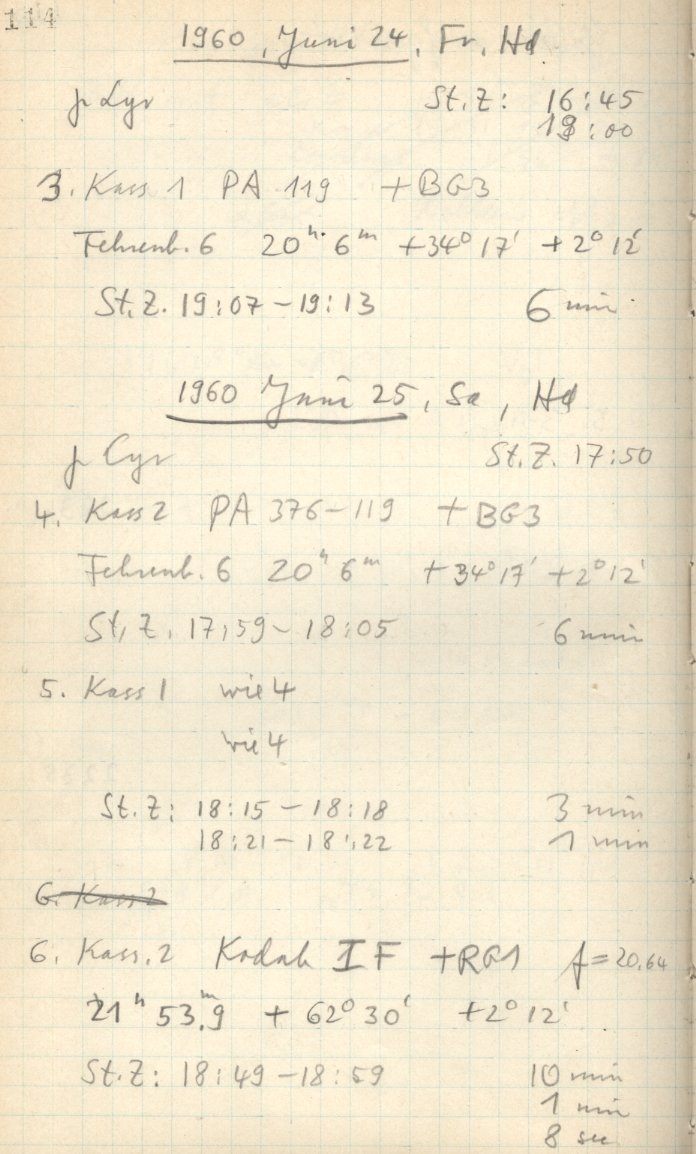 114
1960, Juni 24, Fr, Hd
γ Lyr St.Z: 16:45
19:00
3. Kass 1 PA 119 +BG3
Fehrenb. 6 20ʰ 6ᵐ +34° 17' +2° 12'
St.Z. 19:07 – 19:13 6 min
1960 Juni 25, Sa, Hd
γ Cyr St.Z. 17:50
4. Kass 2 PA 376–119 +BG3
Fehrenb. 6 20ʰ 6ᵐ +34° 17' +2° 12'
St.Z. 17:59 – 18:05 6 min
5. Kass 1 wie 4
wie 4
St.Z: 18:15 – 18:18 3 min
18:21 – 18:22 1 min
6. Kass 2
6. Kass. 2 Kodak I F +RG1 f=20,64
21ʰ 53ᵐ,9 +62° 30' +2° 12'
St.Z: 18:49 – 18:59 10 min
1 min
8 sec